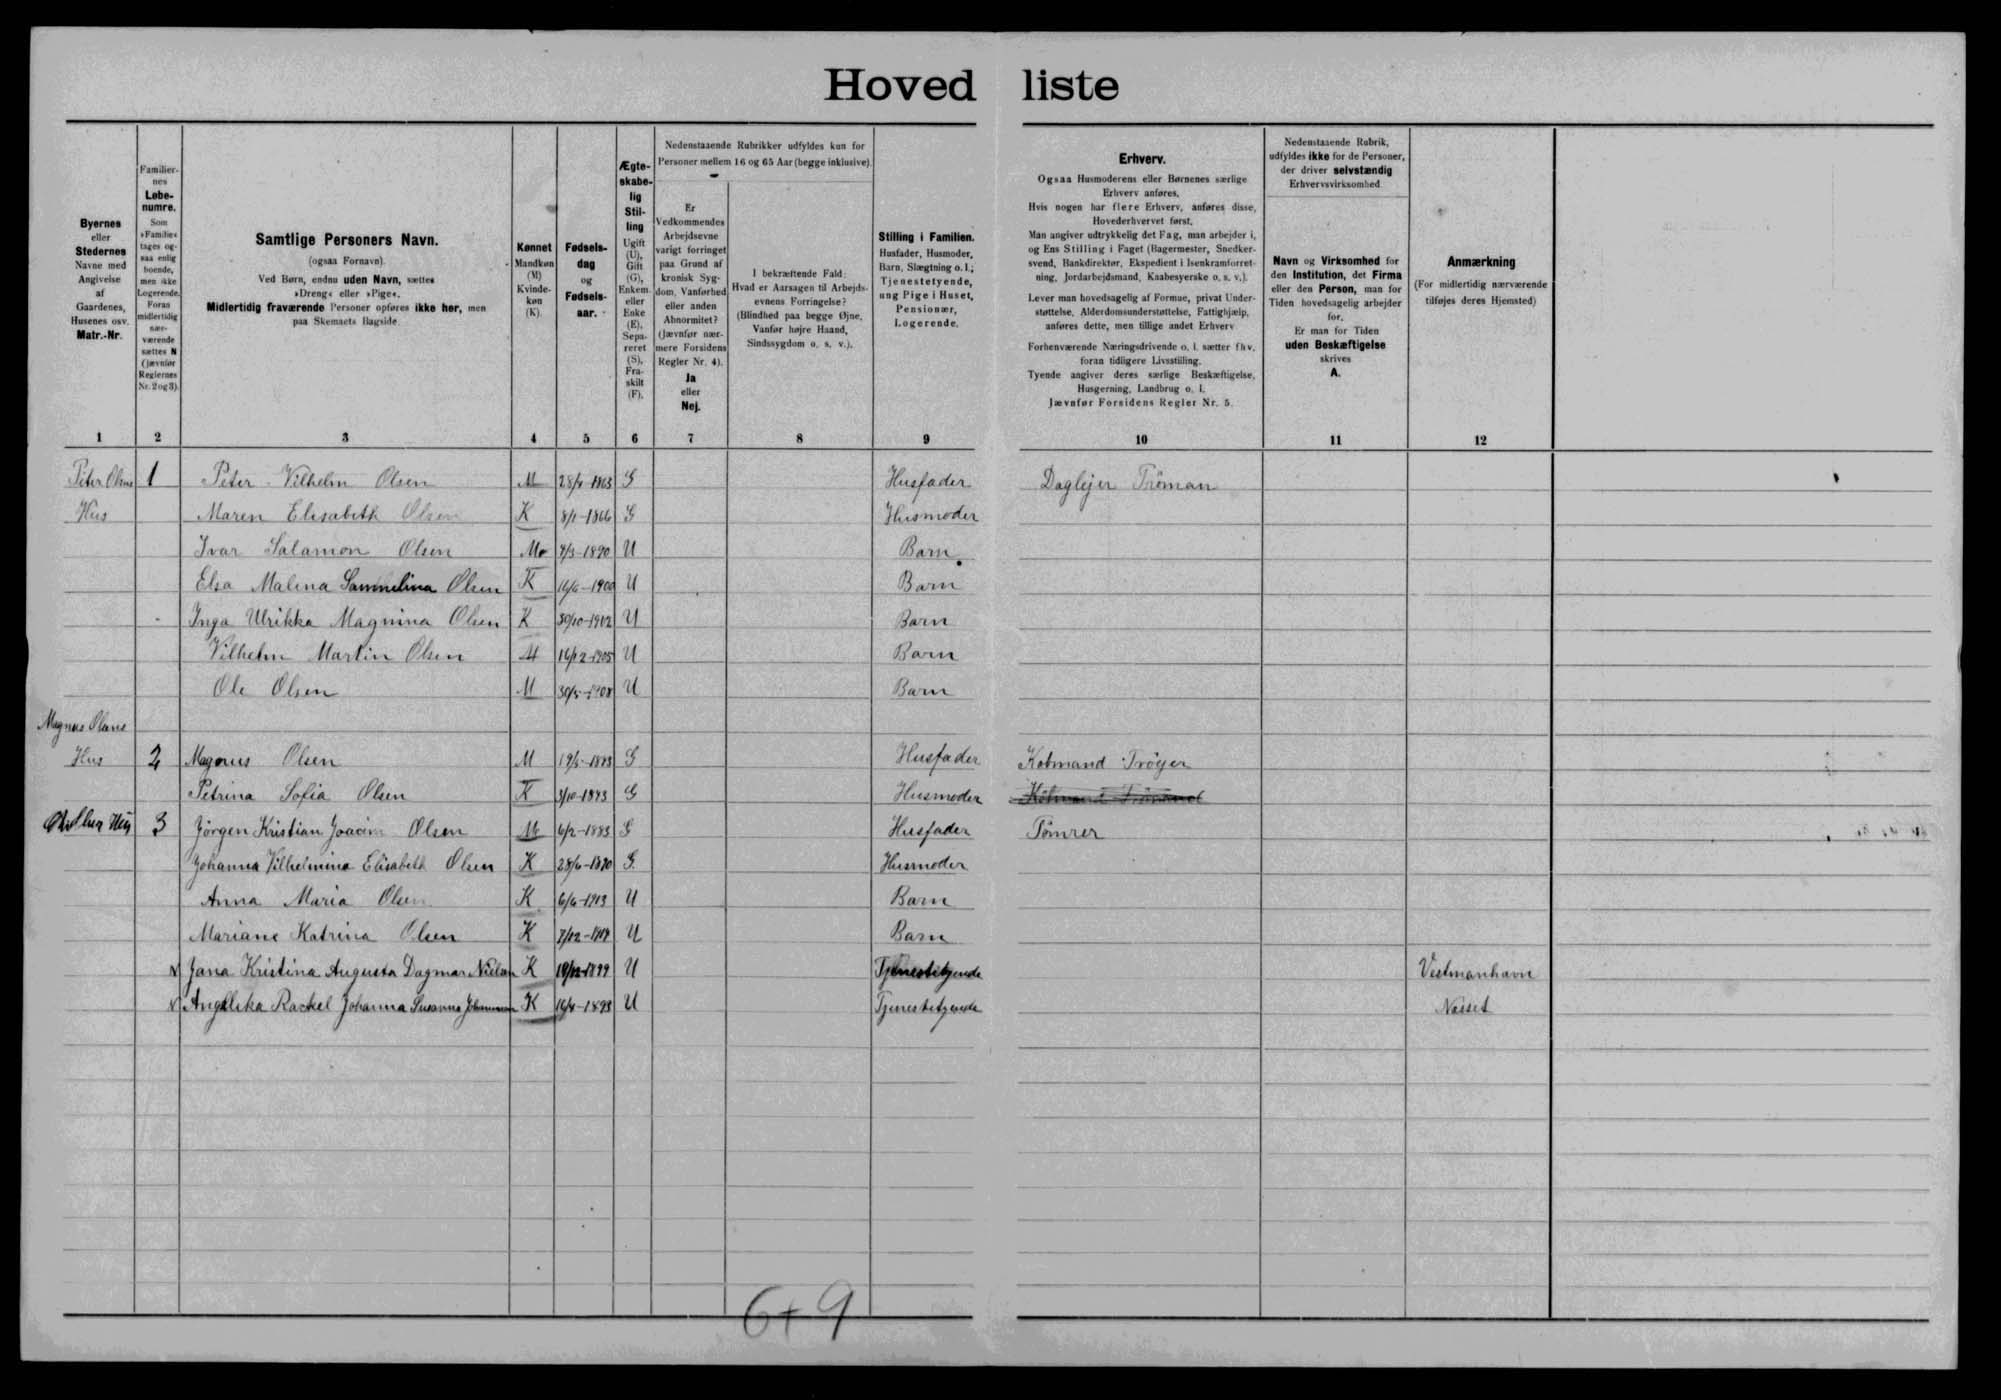 Hoved liste
Byernes
eller
Stedernes
Navne med
Angivelse
af
Gaardenes,
Husenes osv.
Matr.-Nr.
Familier-
nes
Løbe-
numre.
Som
»Familie«
tages og-
saa enlig
boende,
men ikke
Logerende.
Foran
midlertidig
nær-
værende
sættes N
(jævnfør
Reglernes
Nr. 2 og 3).
Samtlige Personers Navn.
(ogsaa Fornavn).
Ved Børn, endnu uden Navn, sættes
»Dreng« eller »Pige«.
Midlertidig fraværende Personer opføres ikke her, men
paa Skemaets Bagside.
Kønnet
Mandkøn
(M)
Kvinde-
køn
(K).
Fødsels-
dag
og
Fødsels-
aar.
Ægte-
skabe-
lig
Stil-
ling
Ugift
(U),
Gift
(G),
Enkem.
eller
Enke
(E),
Sepa-
reret
(S),
Fra-
skilt
(F).
Nedenstaaende Rubrikker udfyldes kun for
Personer mellem 16 og 65 Aar (begge inklusive).
Er
Vedkommendes
Arbejdsevne
varigt forringet
paa Grund af
kronisk Syg-
dom, Vanførhed
eller anden
Abnormitet?
(Jævnfør nær-
mere Forsidens
Regler Nr. 4).
Ja
eller
Nej.
I bekræftende Fald:
Hvad er Aarsagen til Arbejds-
evnens Forringelse?
(Blindhed paa begge Øjne,
Vanfør højre Haand,
Sindssygdom o. s. v.).
Stilling i Familien.
Husfader, Husmoder,
Barn, Slægtning o. l.;
Tjenestetyende,
ung Pige i Huset,
Pensionær,
Logerende.
Erhverv.
Ogsaa Husmoderens eller Børnenes særlige
Erhverv anføres.
Hvis nogen har flere Erhverv, anføres disse,
Hovederhvervet først.
Man angiver udtrykkelig det Fag, man arbejder i,
og Ens Stilling i Faget (Bagermester, Snedker-
svend, Bankdirektør, Ekspedient i Isenkramforret-
ning, Jordarbejdsmand, Kaabesyerske o. s. v.).
Lever man hovedsagelig af Formue, privat Under-
støttelse, Alderdomsunderstøttelse, Fattighjælp,
anføres dette, men tillige andet Erhverv
Forhenværende Næringsdrivende o. l. sætter fhv.
foran tidligere Livsstilling.
Tyende angiver deres særlige Beskæftigelse,
Husgerning, Landbrug o. l.
Jævnfør Forsidens Regler Nr. 5.
Nedenstaaende Rubrik,
udfyldes ikke for de Personer,
der driver selvstændig
Erhvervsvirksomhed
Navn og Virksomhed for
den Institution, det Firma
eller den Person, man for
Tiden hovedsagelig arbejder
for.
Er man for Tiden
uden Beskæftigelse
skrives
A.
Anmærkning
(For midlertidig nærværende
tilføjes deres Hjemsted)
1 2 3 4 5 6 7 8 9 10 11 12
Peter Olsens 1 Peter Vilhelm Olsen M 1863 G Husfader Daglejer Tröman
Hus Maren Elisabeth Olsen K 8/1-1866 G Husmoder
Ivar Salamon Olsen M 1890 U Barn
Elsa Malena Sammelina Olsen K 16/6-1900 U Barn
Inga Ulrikka Magnina Olsen K 30/10-1902 U Barn
Vilhelm Martin Olsen M 16/12-1905 U Barn
Ole Olsen M 30/5-1908 U Barn
Magnus Olsens
Hus 2 Magnus Olsen M G Husfader Kobmand Tröyer
Petrina Sofia Olsen K G Husmoder
Hus 3 Jörgen Kristian Joacim Olsen M 6/2-1883 G Husfader Tömrer
Johanna Vilhelmina Elisabeth Olsen K 28/6-1890 G Husmoder
Anna Maria Olsen K 6/6-1913 U Barn
Mariane Katrina Olsen K U Barn
N Jana Kristina Augusta Dagmar Nielsen K 1899 U Tjenestetyende Vestmanhavn
N Angelika Rachel Johanna Susanna Johannesen K 1893 U Tjenestetyende Nasset
6+9